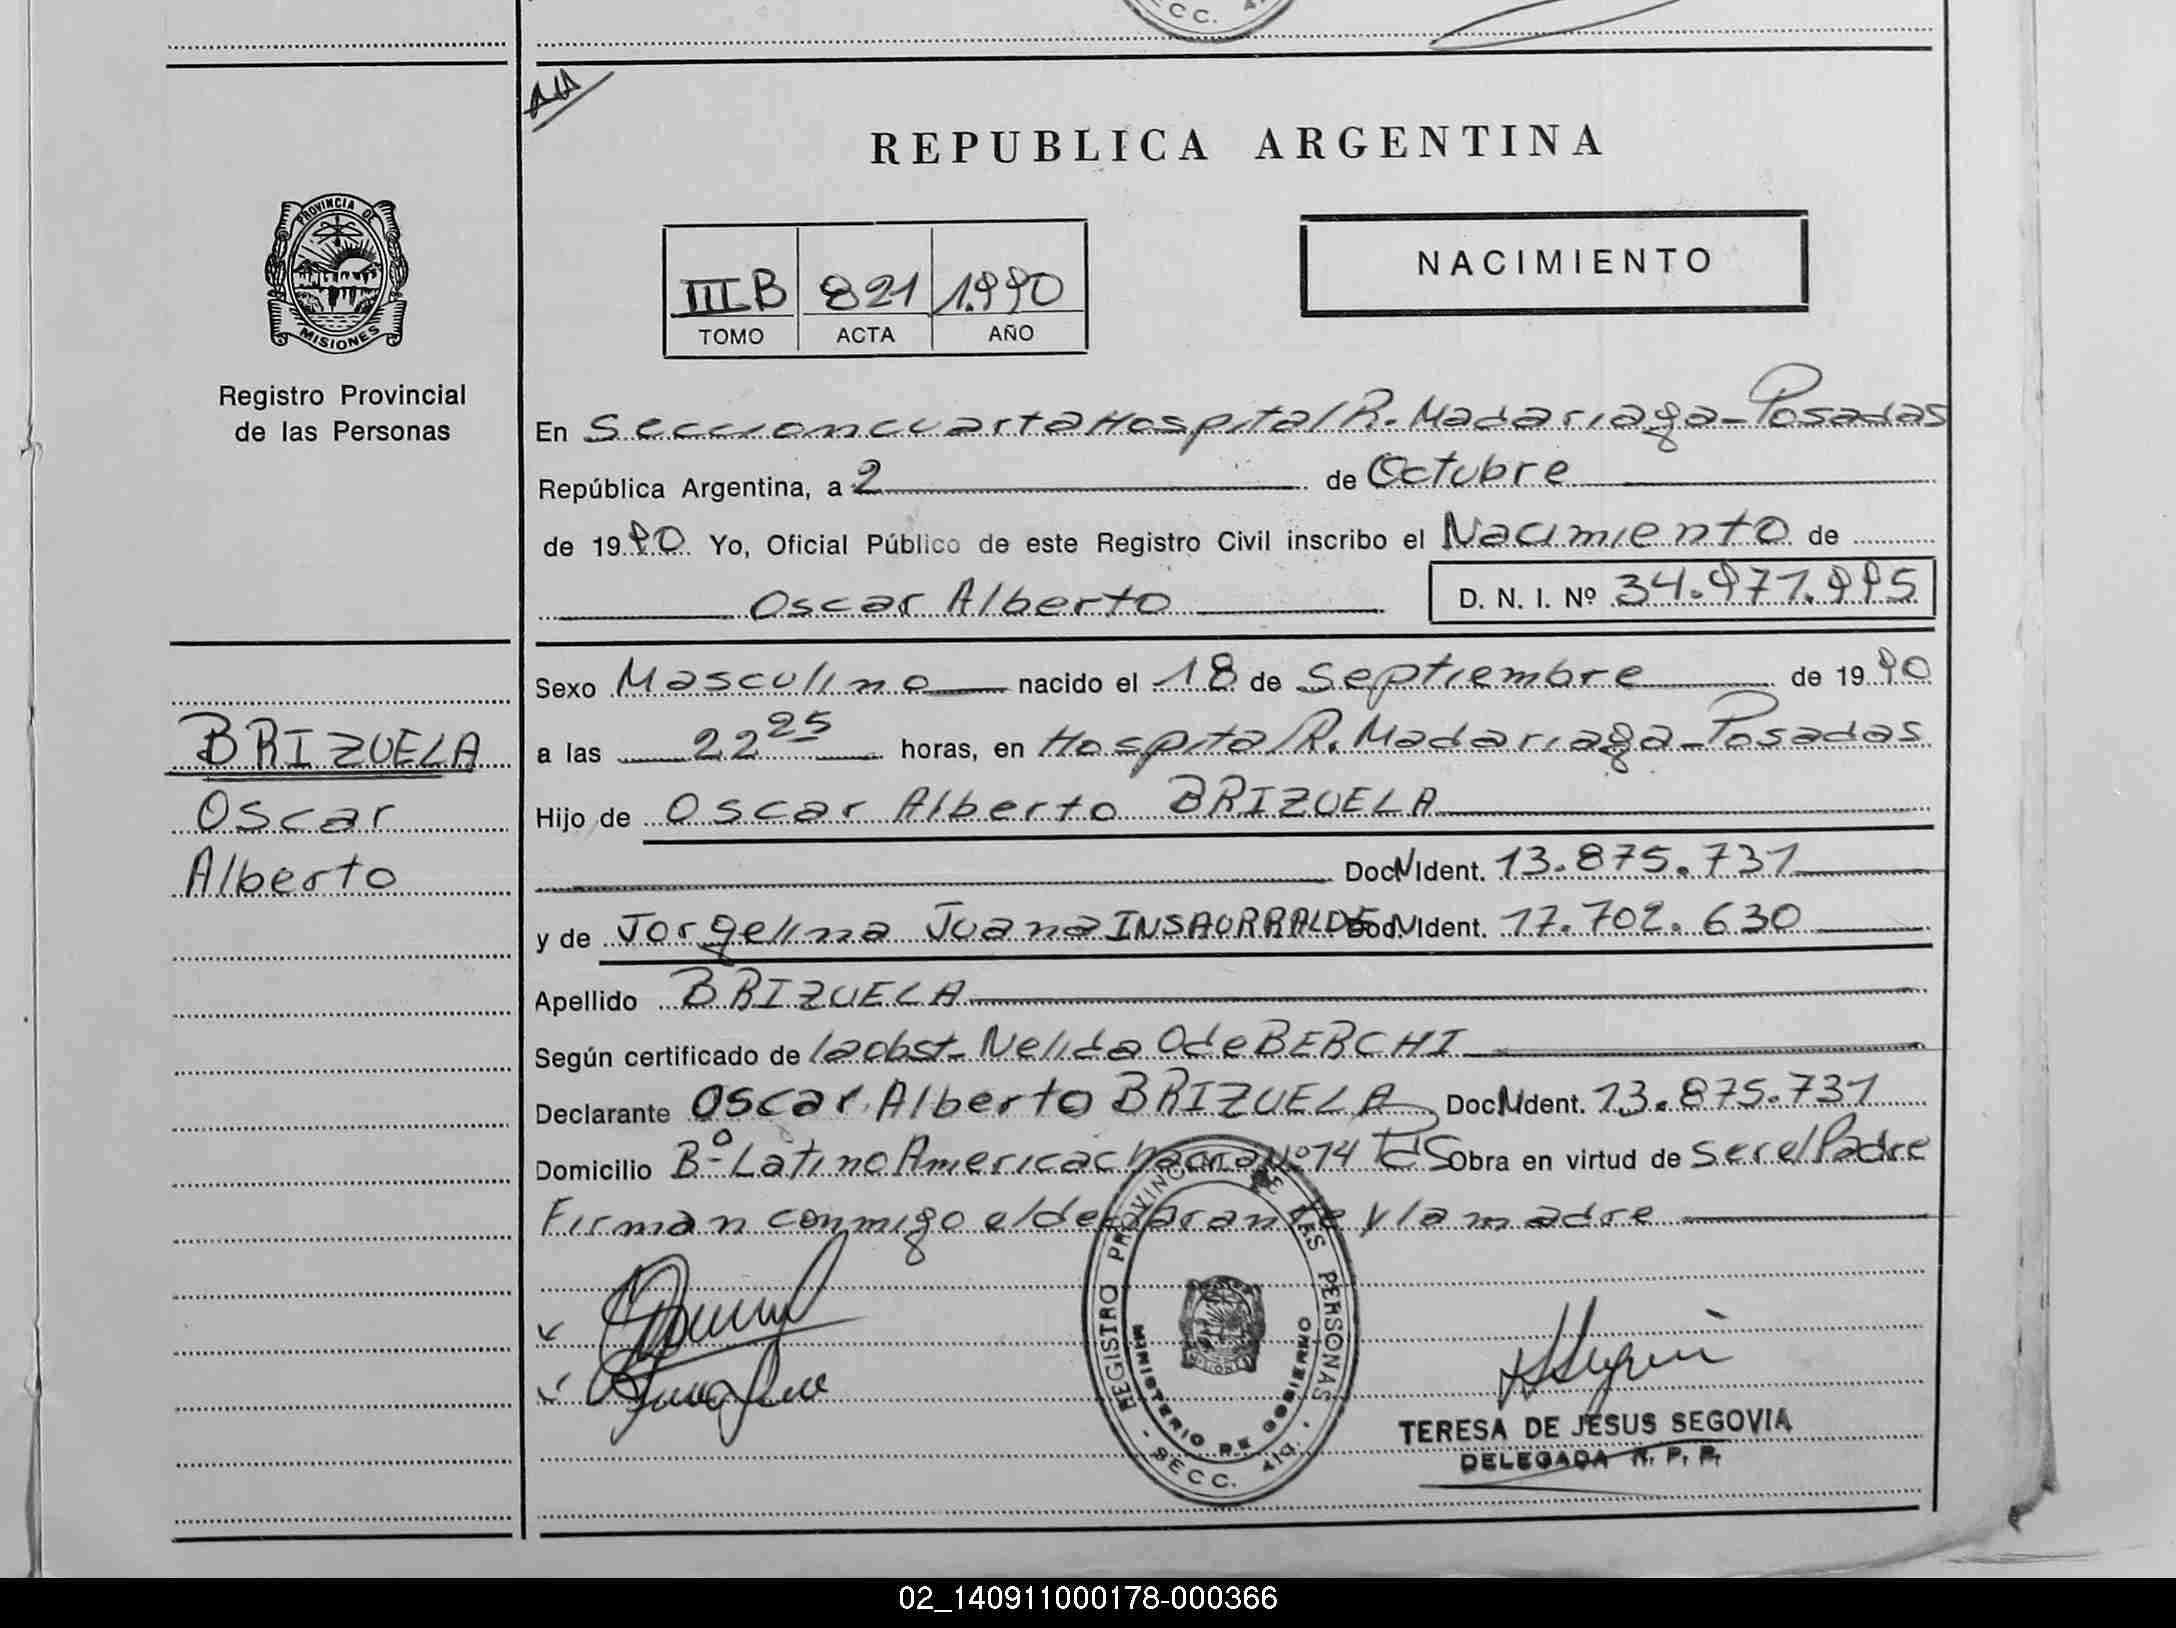 SECC. 4
REPUBLICA ARGENTINA
PROVINCIA DE
MISIONES
Registro Provincial
de las Personas
NACIMIENTO
III B 821 1.990
TOMO ACTA AÑO
En Seccion cuarta Hospital R. Madariaga - Posadas
República Argentina, a 2 de Octubre
de 1990 Yo, Oficial Público de este Registro Civil inscribo el Nacimiento de
Oscar Alberto D. N. I. Nº 34.971.995
Sexo Masculino nacido el 18 de Septiembre de 1990
BRIZUELA
Oscar
Alberto
a las 22 25 horas, en Hospital R. Madariaga - Posadas
Hijo de Oscar Alberto BRIZUELA
Doc N Ident. 13.875.731
y de Jorgelina Juana INSAURRALDE Doc. N Ident. 17.702.630
Apellido BRIZUELA
Según certificado de la obst. Nelida O de BERCHI
Declarante Oscar Alberto BRIZUELA Doc N Ident. 13.875.731
Domicilio Bº Latino America chacra Nº 14 Pds Obra en virtud de ser el Padre
Firman conmigo el declarante y la madre
REGISTRO PROVINCIAL DE LAS PERSONAS
MINISTERIO DE GOBIERNO
SECC. 4ta.
TERESA DE JESUS SEGOVIA
DELEGADA R. P. P.
02_140911000178-000366